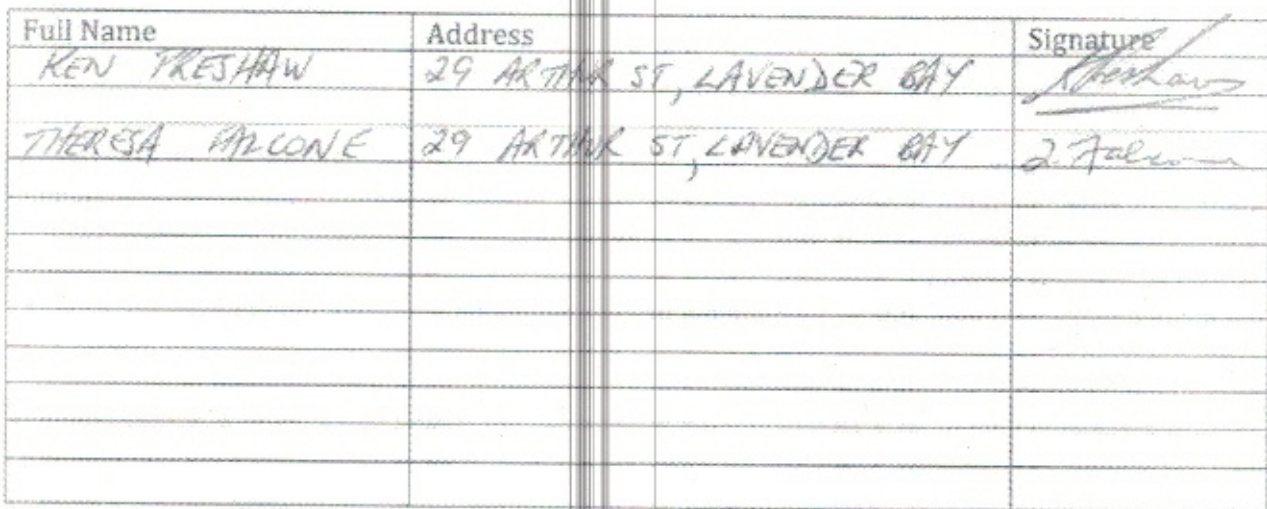 Full Name Address Signature
KEN PRESHAW 29 ARTHUR ST, LAVENDER BAY
THERESA FALCONE 29 ARTHUR ST, LAVENDER BAY